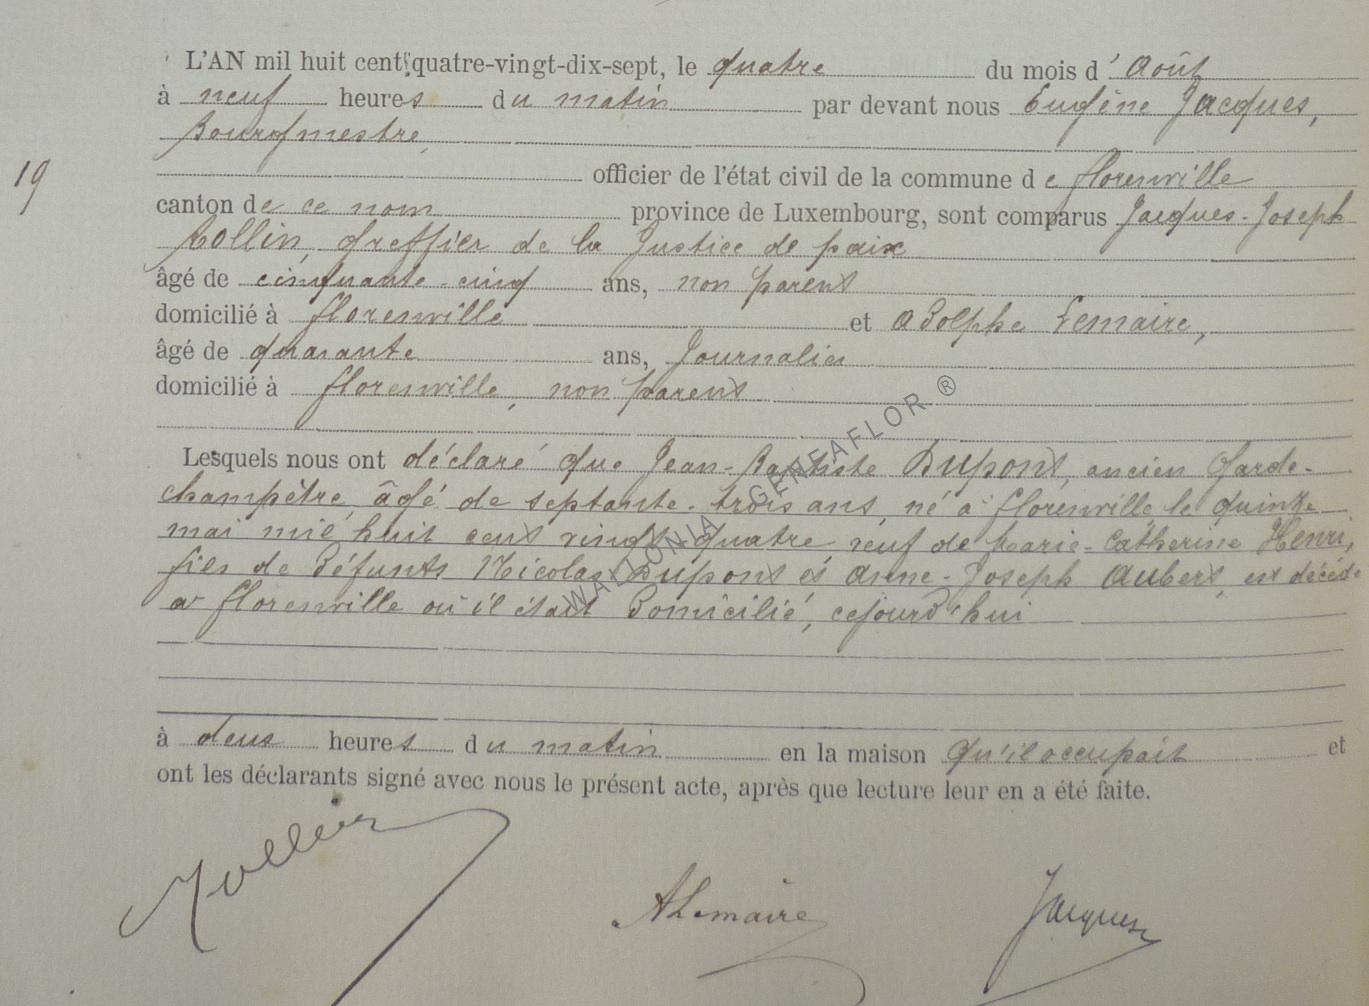 L'AN mil huit cent quatre-vingt-dix-sept, le quatre du mois d' Août
à neuf heures du matin par devant nous Eugène Jacques,
Bourgmestre,
19
officier de l'état civil de la commune de florenville
canton de ce nom province de Luxembourg, sont comparus Jacques-Joseph
Rollin, Greffier de la Justice de paix
âgé de cinquante-cinq ans, non parent
domicilié à florenville et Adolphe Lemaire,
âgé de quarante ans, Journalier
domicilié à florenville, non parent
Lesquels nous ont déclaré que Jean-Baptiste Dupont, ancien Garde-
champêtre, âgé de septante-trois ans, né à florenville le quinze
mai mil huit cent vingt-quatre, veuf de Marie-Catherine Henri,
fils de défunts Nicolas Dupont et Anne-Joseph Aubert, est décédé
à florenville où il était domicilié, cejourd'hui
à deux heures du matin en la maison qu'il occupait et
ont les déclarants signé avec nous le présent acte, après que lecture leur en a été faite.
ALemaire Jacques
WALLONIA GENEAFLOR ®